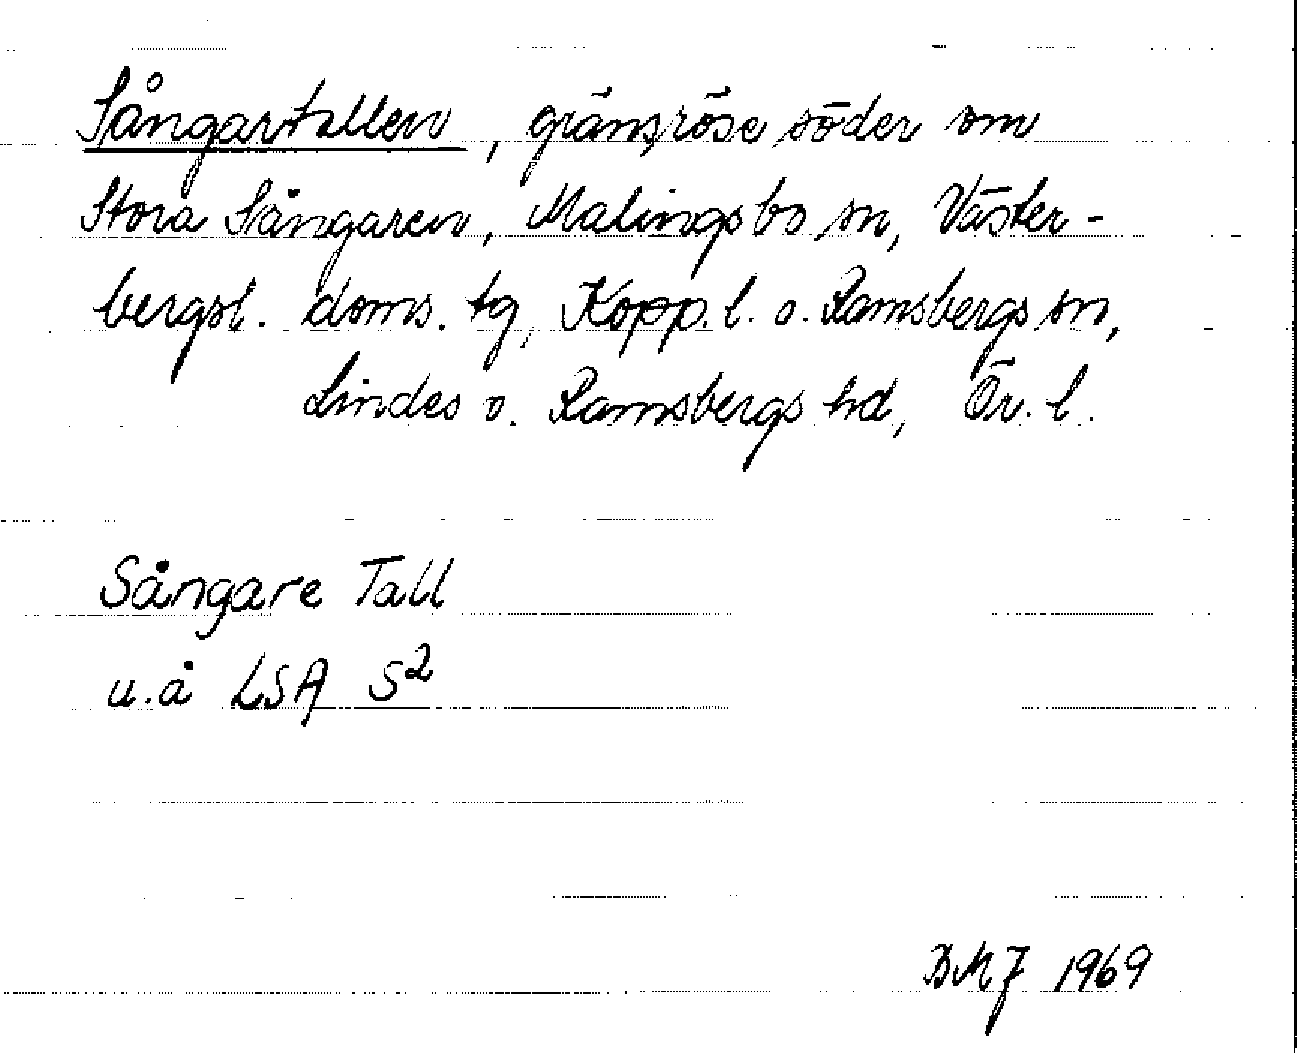 Sångartallen, gränsröse söder om
Stora Sångaren, Malingsbo sn, Väster-
bergsl. doms. tg, Kopp. l. o. Ramsbergs sn,
Lindes o. Ramsbergs hd, Ör. l.
Sångare Tall
u.å LSA S²
BMJ 1969